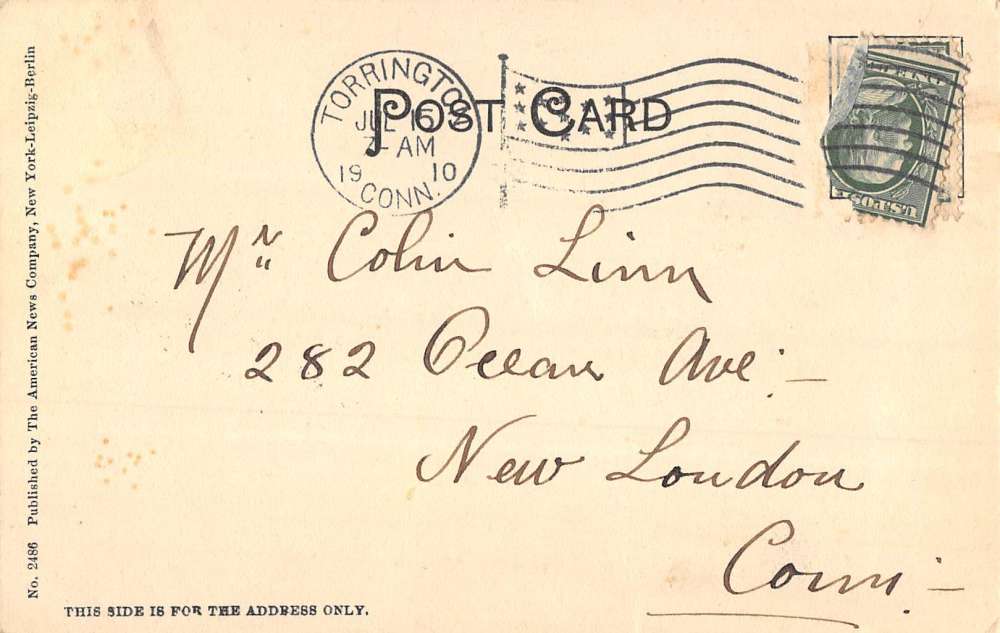 POST CARD
TORRINGTON
JUL 15
7- AM
19 10
CONN.
Mr Colin Linn
282 Ocean Ave.
New London
Conn.
THIS SIDE IS FOR THE ADDRESS ONLY.
No. 2486 Published by The American News Company, New York-Leipzig-Berlin